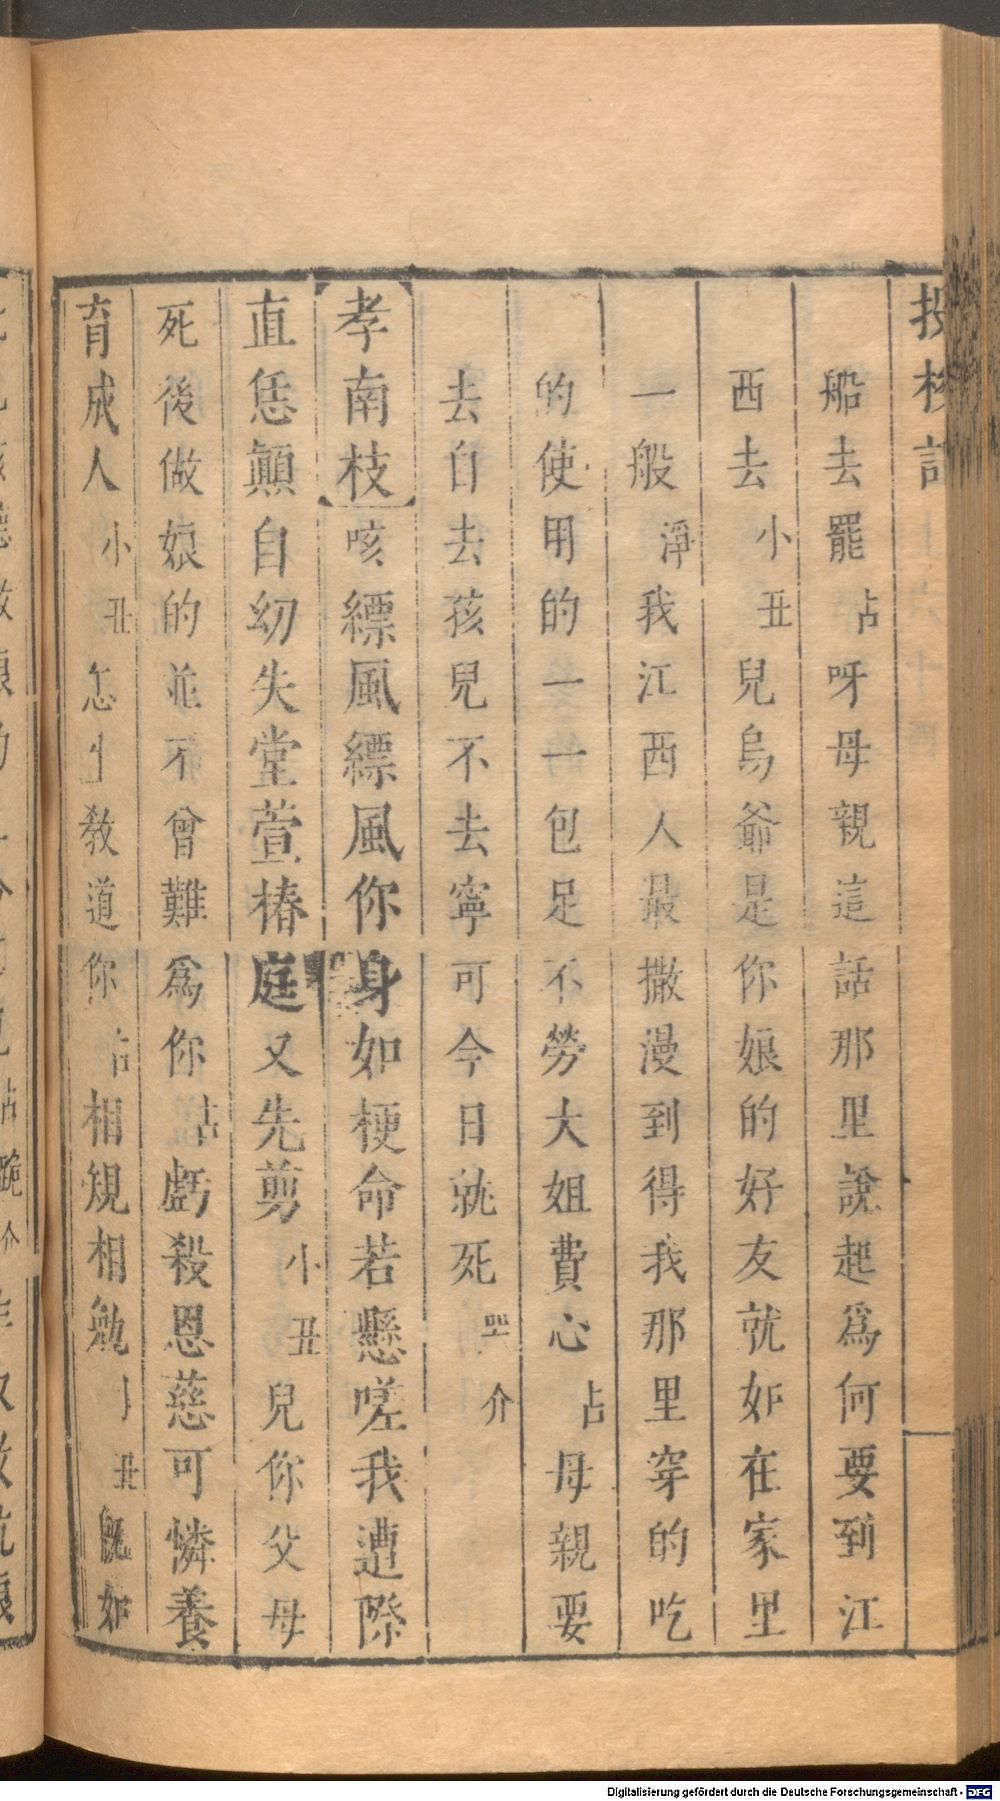 投梭記
船去罷占呀母親這話那里說起爲何要到江
西去小丑兒烏爺是你娘的好友就如在家里
一般淨我江西人最撒漫到得我那里穿的吃
的使用的一一包足不勞大姐費心占母親要
去自去孩兒不去寧可今日就死哭介
孝南枝咳縹風縹風你身如梗命若懸嗟我遭際
直恁顛自幼失堂萱椿庭又先剪小丑兒你父母
死後做娘的並不曾難爲你占虧殺恩慈可憐養
育成人小丑怎生教道你占相規相勉小丑旣如
Digitalisierung gefördert durch die Deutsche Forschungsgemeinschaft - DFG